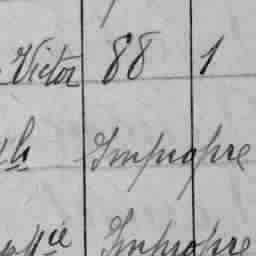 Victor 88 1
Impropre
Impropre